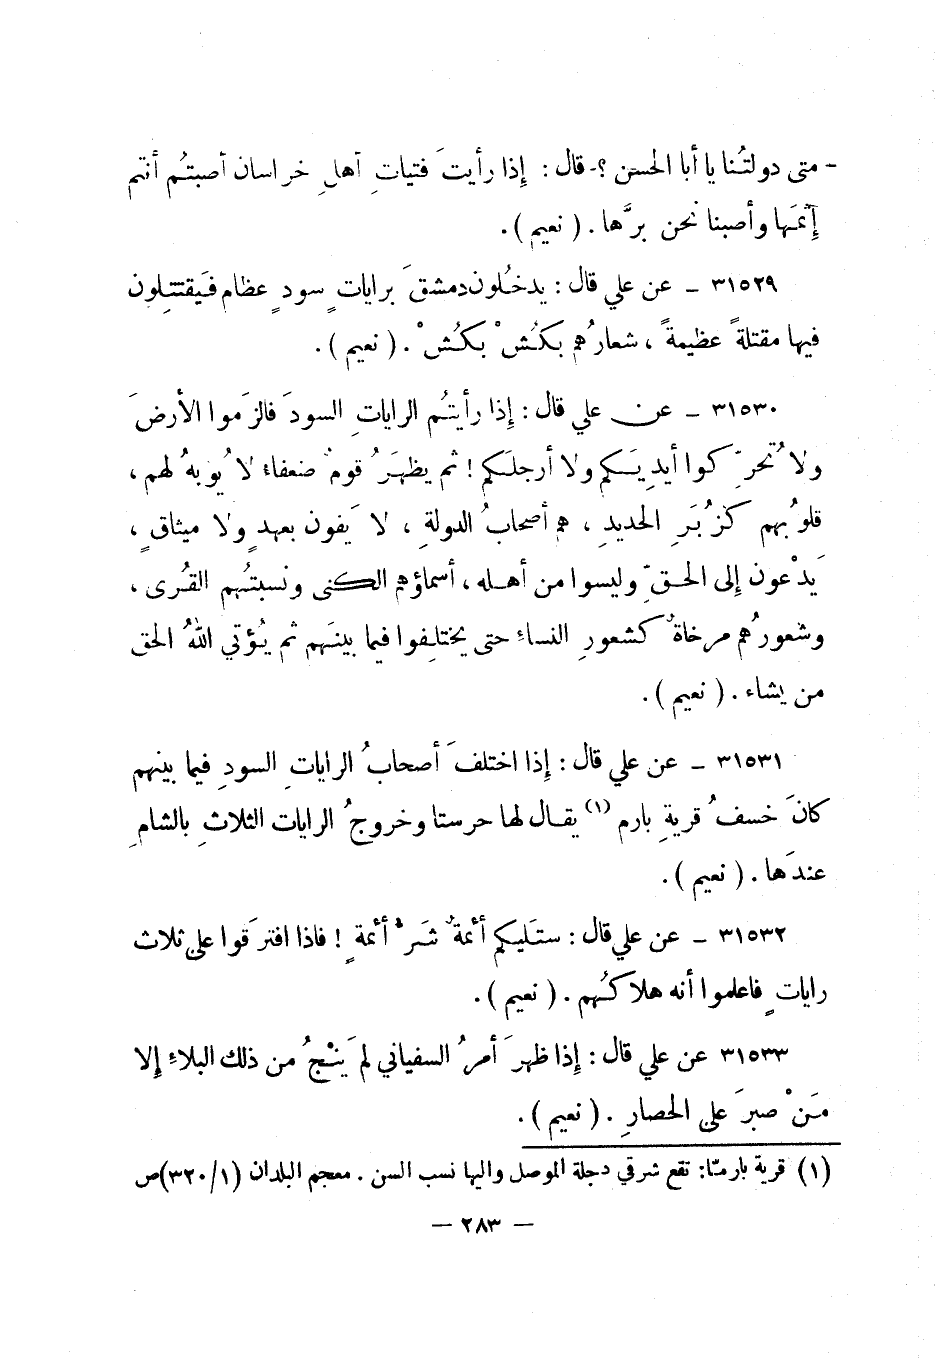 - متى دولتُنا يا أبا الحسن ؟- قال : إذا رأيتَ فتياتِ أهلِ خراسان أصبتُم أنتم
إثمَها وأصبنا نحن برَّها . ( نعيم ) .
٣١٥٢٩ - عن علي قال : يدخُلون دمشقَ برايات ٍ سود ٍ عظام فيَقتتِلون
فيها مقتلةً عظيمةً ، شعارُهم بكُشْ بكُشْ . ( نعيم ) .
٣١٥٣٠ - عن علي قال : إذا رأيتُم الرايات ِ السودَ فالزَموا الأرضَ
ولا تُحرِّكوا أيديَكم ولا أرجلَكم ! ثم يظهَرُ قومٌ ضعفاءُ لا يُوبهُ لهم ،
قلوبُهم كزُبَرِ الحديدِ ، هم أصحابُ الدولةِ ، لا يَفون بعهدٍ ولا ميثاقٍ ،
يَدْعون إلى الحقِّ وليسوا من أهله ، أسماؤهم الكنى ونسبتُهم القُرى ،
وشعورُهم مرخاةٌ كشعورِ النساءِ حتى يختلِفوا فيما بينَهم ثم يُؤتي اللهُ الحق
من يشاء . ( نعيم ) .
٣١٥٣١ - عن علي قال : إذا اختلفَ أصحابُ الراياتِ السودِ فيما بينهم
كانَ خسفُ قريةِ بارم (١) يقال لها حرستا وخروجُ الرايات الثلاثِ بالشامِ
عندَها . ( نعيم ) .
٣١٥٣٢ - عن علي قال : ستَليكم أئمةٌ شَرُّ أئمةٍ ! فاذا افترَقوا على ثلاث
راياتٍ فاعلموا أنه هلاكُهم . ( نعيم ) .
٣١٥٣٣ عن علي قال : إذا ظهرَ أمرُ السفياني لم يَنْجُ من ذلك البلاءِ إلا
مَنْ صبرَ على الحصارِ . ( نعيم ) .
(١) قرية بارمّا: تقع شرقي دجلة الموصل واليها نسب السن . معجم البلدان (٣٢٠/١)ص
- ٢٨٣ -